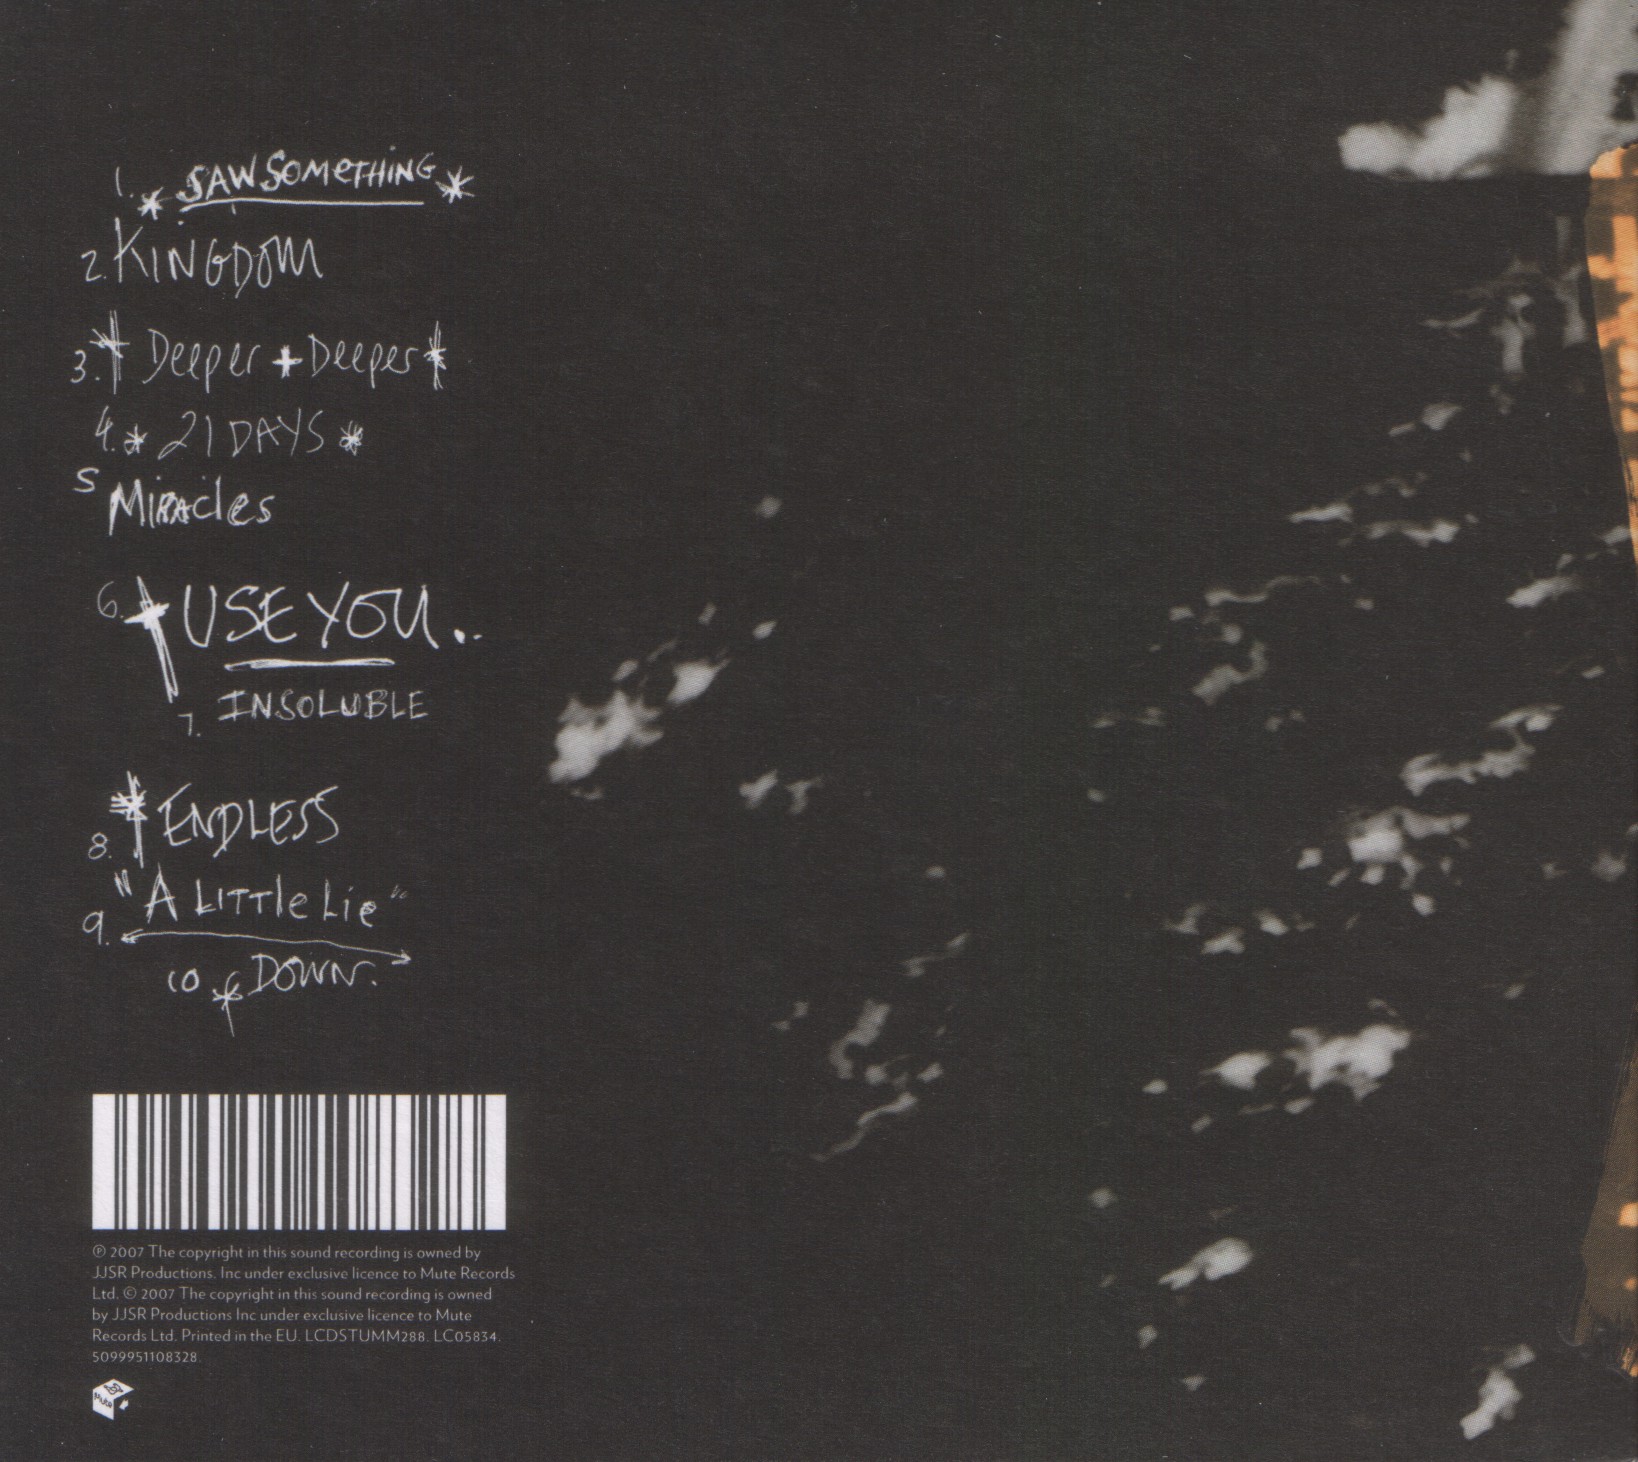 1. * SAW SOMETHING *
2. KINGDOM
3. Deeper + Deeper
4. * 21 DAYS *
5 Miracles
6. USE YOU..
7. INSOLUBLE
8. ENDLESS
9. "A LITTle Lie"
10 DOWN.
℗ 2007 The copyright in this sound recording is owned by
JJSR Productions. Inc under exclusive licence to Mute Records
Ltd. © 2007 The copyright in this sound recording is owned
by JJSR Productions Inc under exclusive licence to Mute
Records Ltd. Printed in the EU. LCDSTUMM288. LC05834.
5099951108328.
Mute